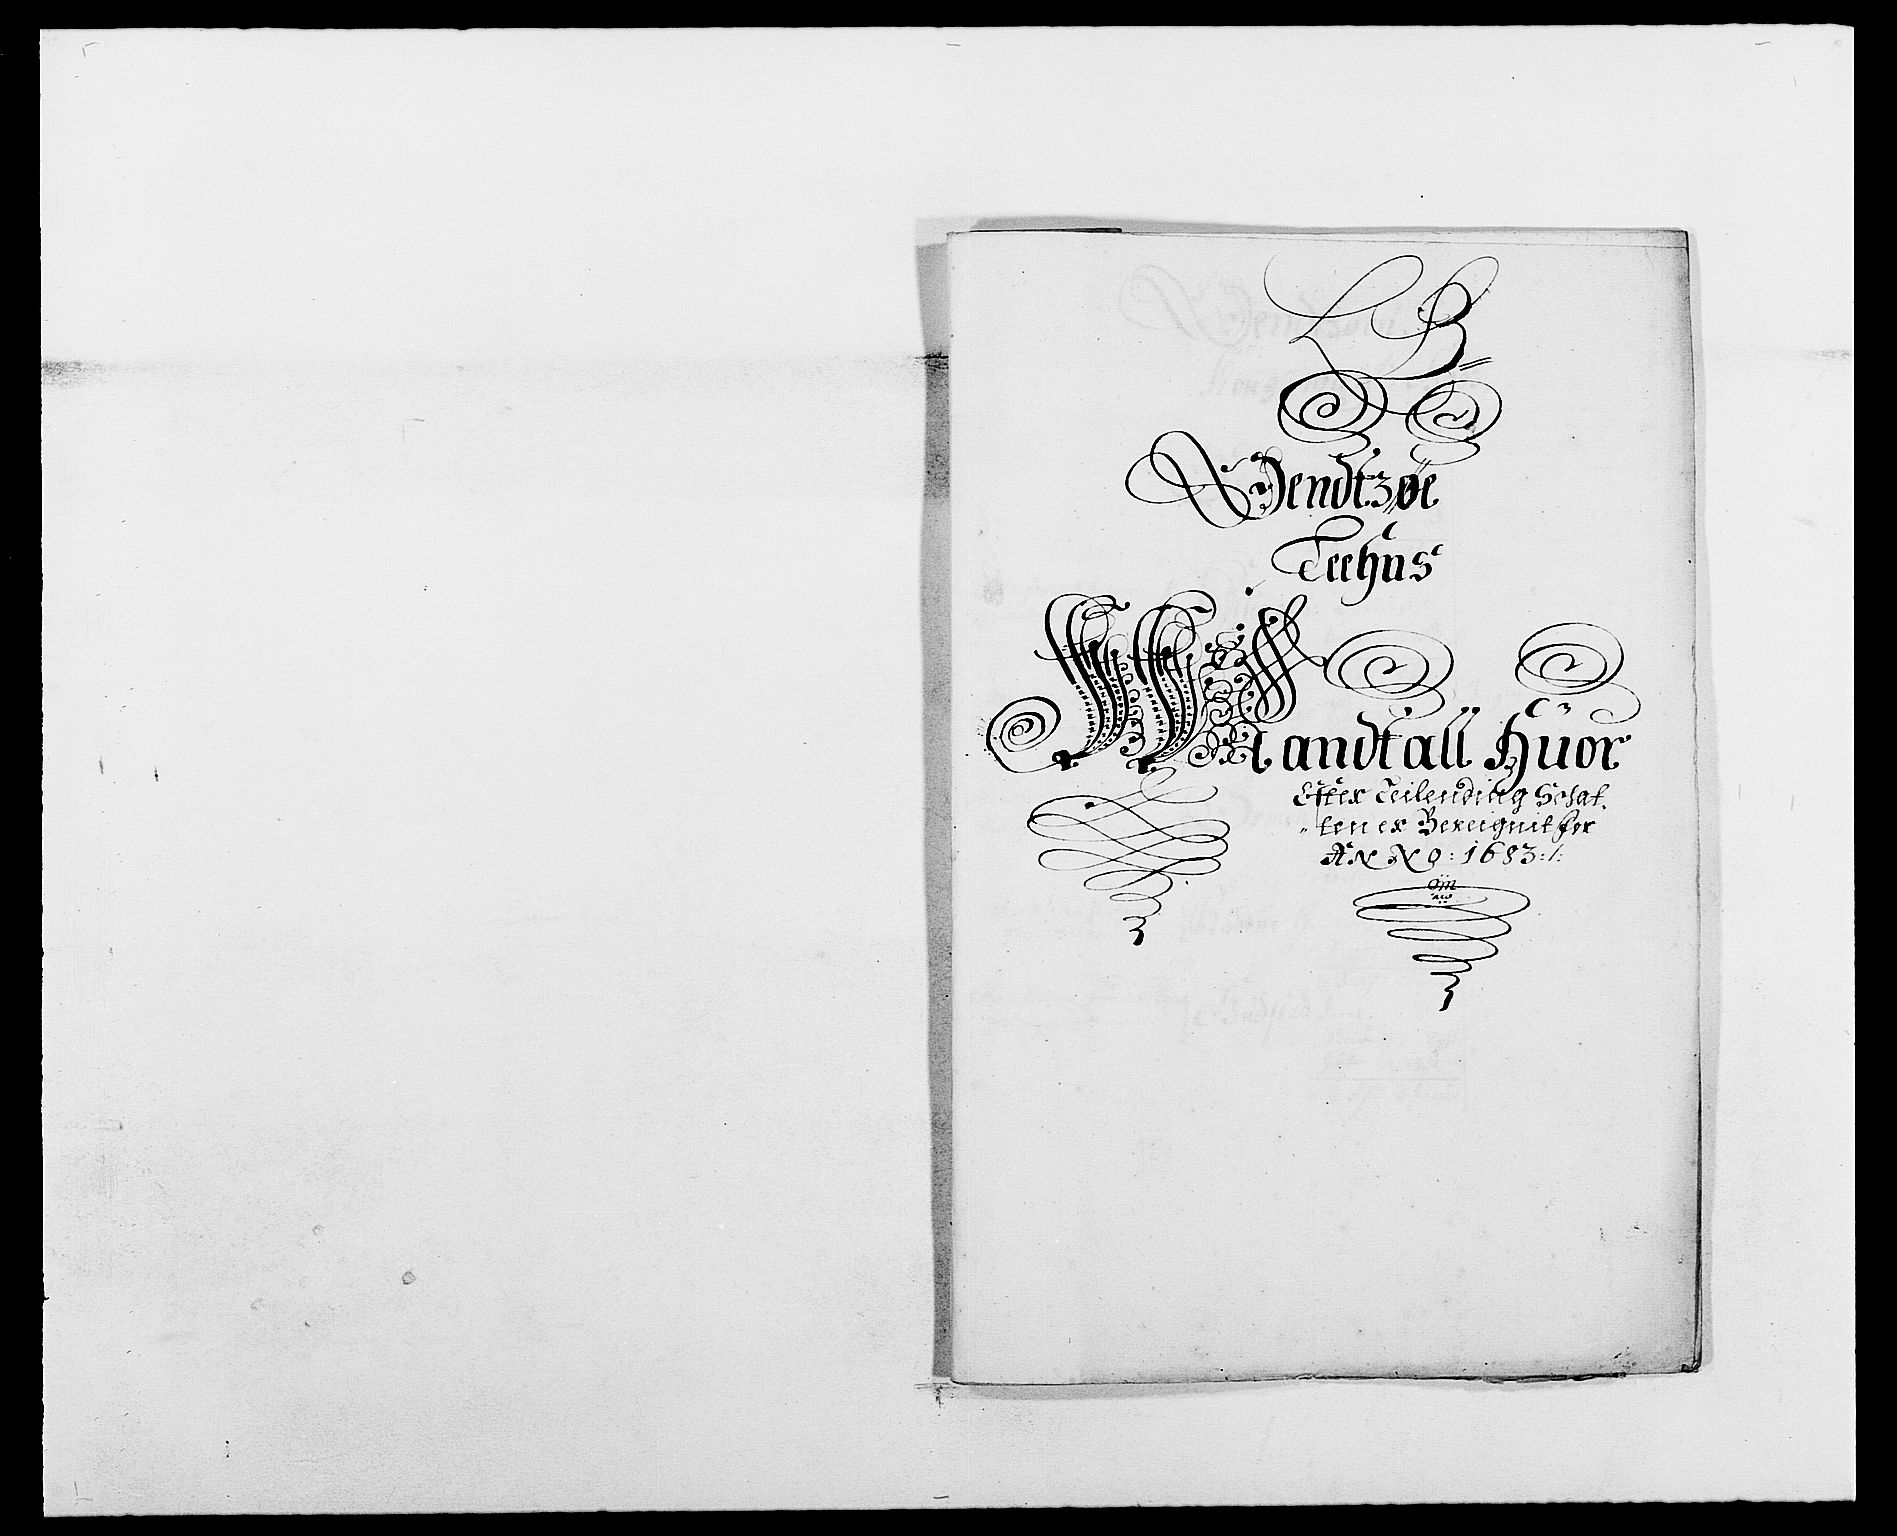 L B
Jendtzøe
Teehns
Mandtall huor
Efter Teilending Schat
ten er Bereignit for
ANNO: 1683:/: